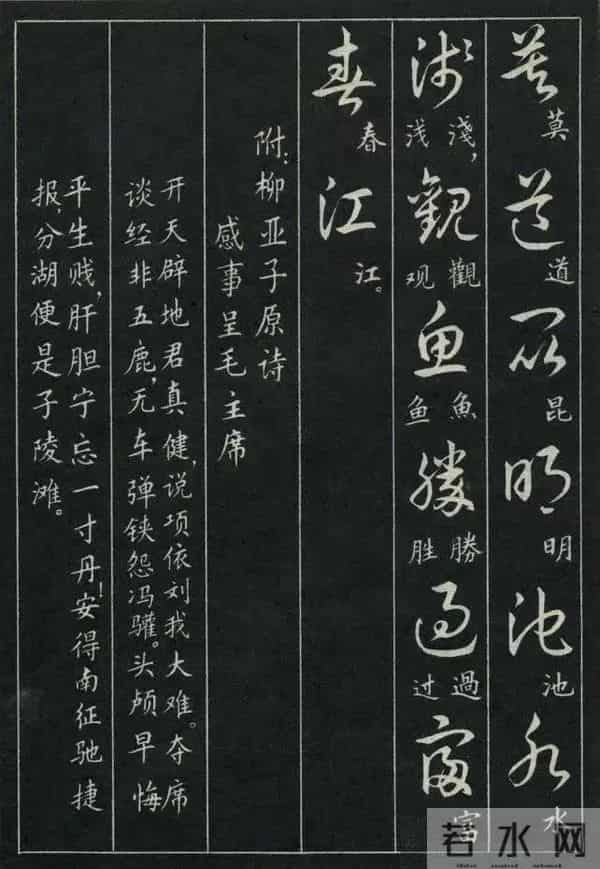 莫道昆明池水
莫道昆明池水
浅观鱼胜过富
淺,觀魚勝過富
浅观鱼胜过
春江
春江。
附:柳亚子原诗
感事呈毛主席
开天辟地君真健,说项依刘我大难。夺席
谈经非五鹿,无车弹铗怨冯驩。头颅早悔
平生贱,肝胆宁忘一寸丹!安得南征驰捷
报,分湖便是子陵滩。
若水网